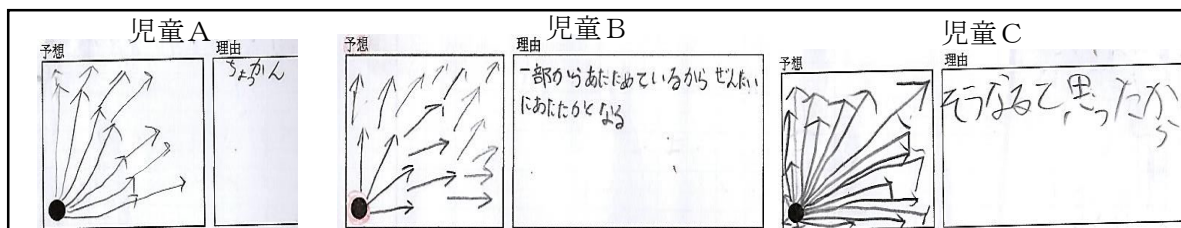 児童A
予想
理由
ちょっかん
児童B
予想
理由
一部からあたためているから ぜんたい
にあたたかくなる
児童C
予想
理由
そうなると思ったか
ら